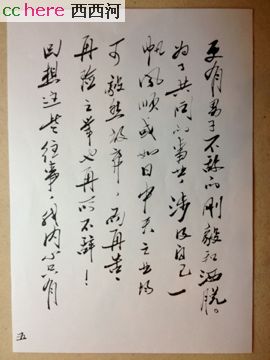 cchere 西西河
更有男子不敌的刚毅和洒脱。
为了共同的事业，涉及自己一
帆风顺或如日中天之业场
可毅然放弃，而再苦、
再险之举也再所不辞！
回想这些往事，我内心只有
五